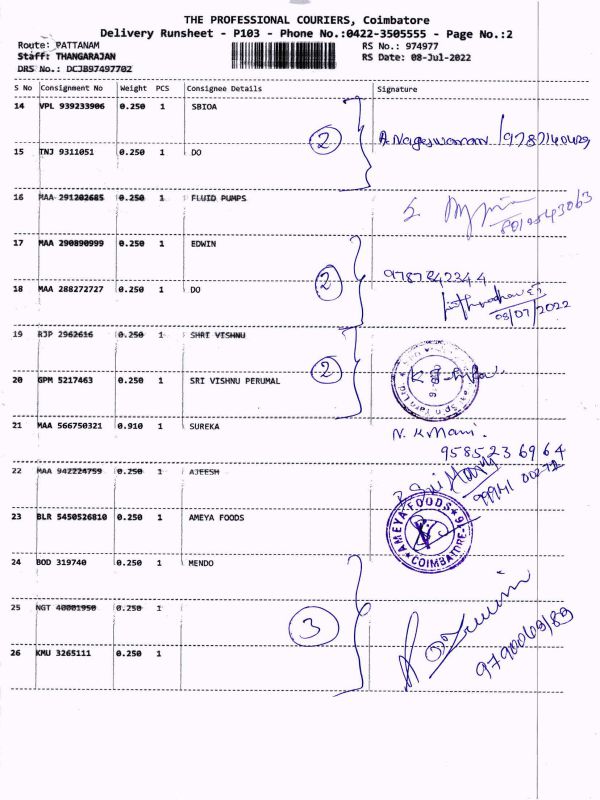 THE PROFESSIONAL COURIERS, Coimbatore
Delivery Runsheet - P103 - Phone No.:0422-3505555 - Page No.:2
Route: PATTANAM RS No.: 974977
Staff: THANGARAJAN RS Date: 08-Jul-2022
DRS No.: DCJB97497702
S No Consignment No Weight PCS Consignee Details Signature
14 VPL 939233906 0.250 1 SBIOA
2 A. Nageswaran / 9787140429
15 TNJ 9311051 0.250 1 DO
16 MAA 291202685 0.250 1 FLUID PUMPS
8019543063
17 MAA 290890999 0.250 1 EDWIN
2 9787242344
18 MAA 288272727 0.250 1 DO
08/07/2022
19 RJP 2962616 0.250 1 SHRI VISHNU
2
20 GPM 5217463 0.250 1 SRI VISHNU PERUMAL
21 MAA 566750321 0.910 1 SUREKA N. K Mani.
9585236964
22 MAA 942224759 0.250 1 AJEESH
99941 00272
23 BLR 5450526810 0.250 1 AMEYA FOODS
AMEYA FOODS COIMBATORE
24 BOD 319740 0.250 1 MENDO
25 NGT 40001950 0.250 1
3
9790069189
26 KMU 3265111 0.250 1